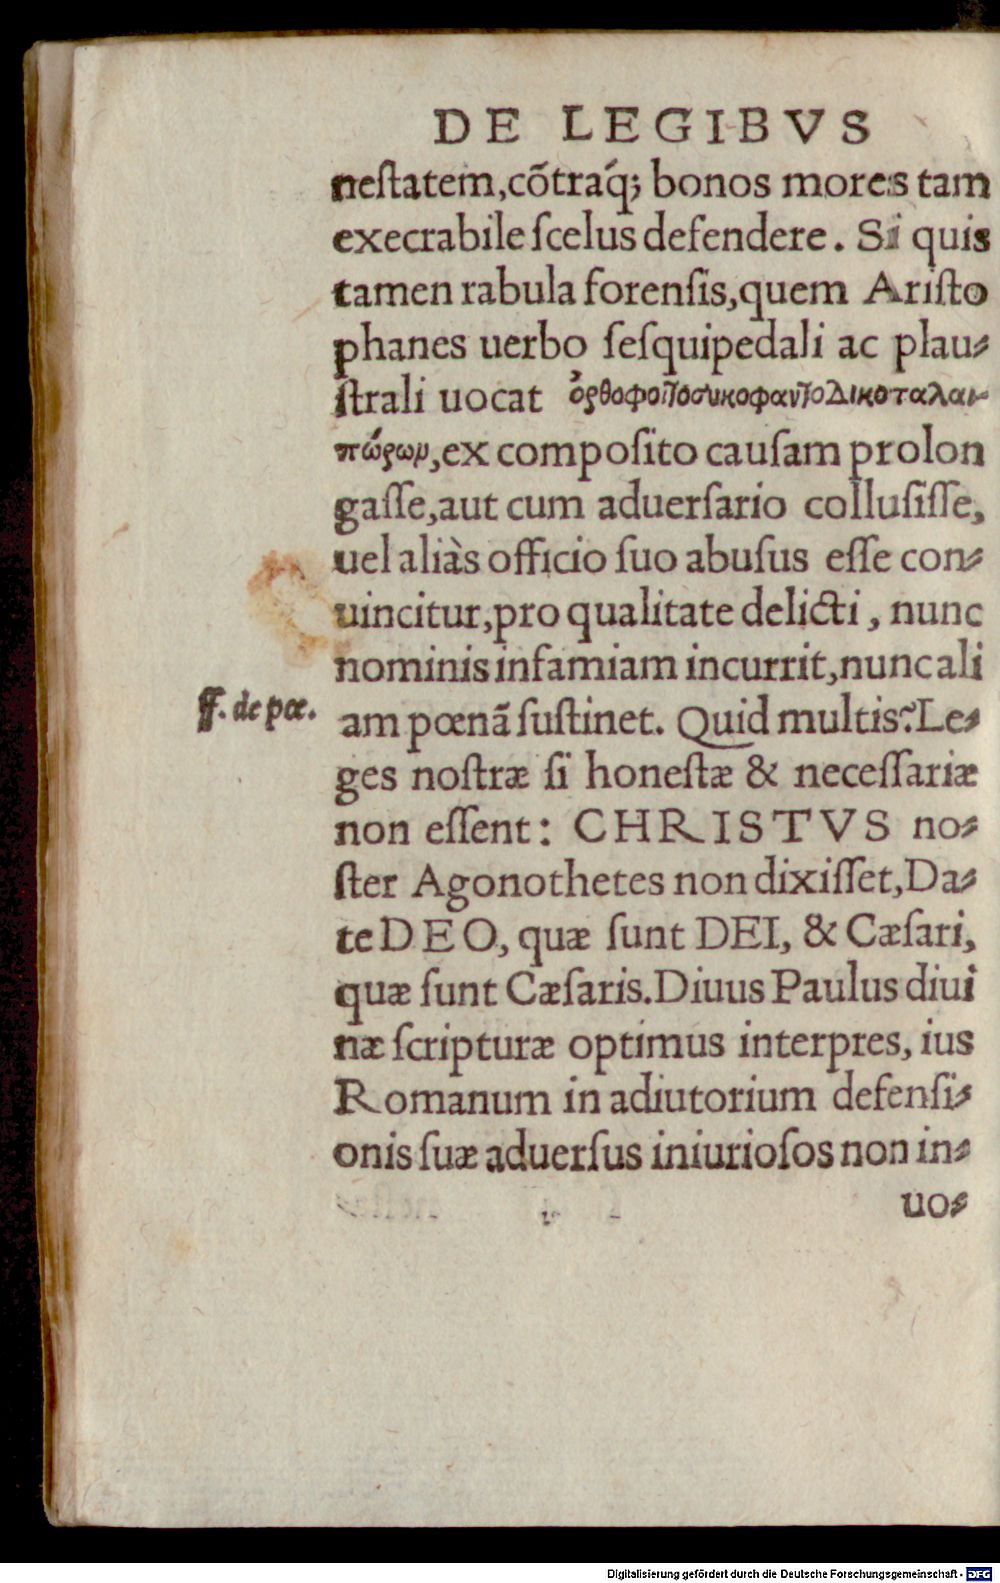 DE LEGIBVS
neſtatem,cõtraq́; bonos mores tam
execrabile ſcelus defendere. Si quis
tamen rabula forenſis,quem Ariſto
phanes uerbo ſeſquipedali ac plau⸗
ſtrali uocat ὀρθοφοιτοσυκοφαντοδικοταλαι-
πώρωμ,ex compoſito cauſam prolon
gaſſe,aut cum aduerſario colluſiſſe,
uel aliàs officio ſuo abuſus eſſe con⸗
uincitur,pro qualitate delicti, nunc
nominis infamiam incurrit,nunc ali
ff. de pœ.
am pœnã ſuſtinet. Quid multis? Le⸗
ges noſtræ ſi honeſtæ & neceſſariæ
non eſſent: CHRISTVS no⸗
ſter Agonothetes non dixiſſet,Da⸗
te DEO, quæ ſunt DEI, & Cæſari,
quæ ſunt Cæſaris.Diuus Paulus diui
næ ſcripturæ optimus interpres, ius
Romanum in adiutorium defenſi⸗
onis ſuæ aduerſus iniurioſos non in⸗
uo⸗
Digitalisierung gefördert durch die Deutsche Forschungsgemeinschaft - DFG